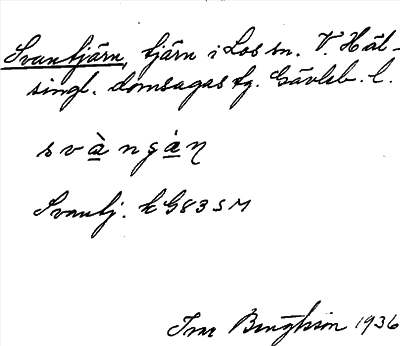 Svantjärn, tjärn i Los sn. V. Häl-
singl. domsagas tg. Gävleb. l.
svàngàn
Svantj. kG83SM
Ivar Bengtsson 1936